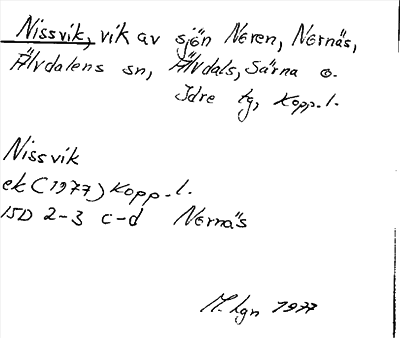 Nissvik, vik av sjön Neren, Nernäs,
Älvdalens sn, Älvdals, Särna o.
Idre tg, Kopp. l.
Nissvik
ek (1977) Kopp. l.
15D 2-3 c-d Nernäs
M. Lgn 1977